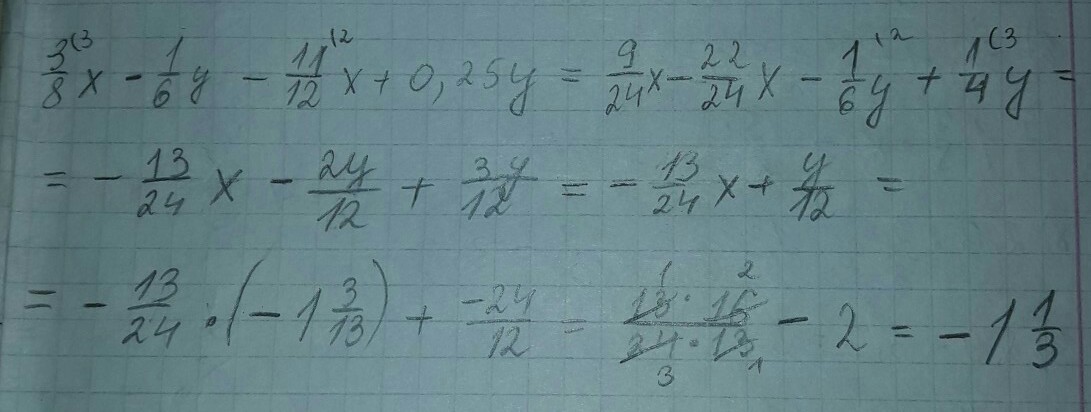 3/8 (3 x - 1/6 y - 11/12 (2 x + 0,25y = 9/24 x - 22/24 x - 1/6 (2 y + 1/4 (3 y =
= - 13/24 x - 2y/12 + 3y/12 = - 13/24 x + y/12 =
= - 13/24 · (-1 3/13) + -24/12 = 13 · 16 / 24 · 13 1 2 3 1 - 2 = -1 1/3